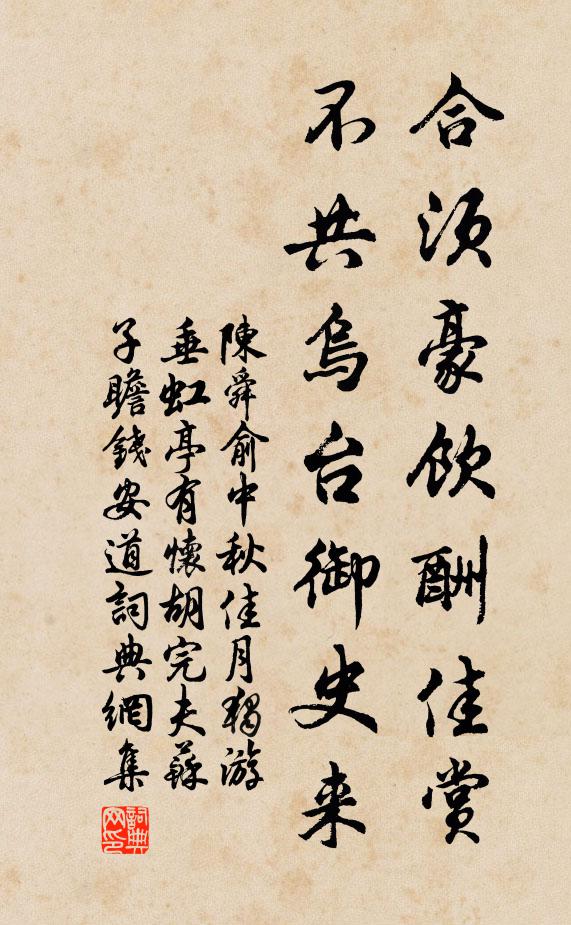 合须豪饮酬佳赏
不共乌台御史来
陳舜俞中秋佳月獨游
垂虹亭有懷胡完夫蘇
子瞻錢安道詞典網集
詞典
网印